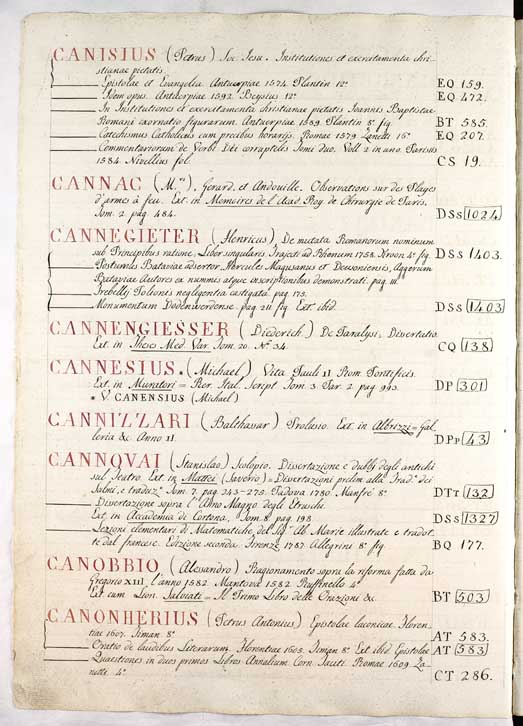 CANISIUS (Petrus) Soc. Iesu. Institutiones et exercitamenta chri-
stianae pietatis.
Epistolae et Evangelia Antuerpiae 1574. Plantin 12° EQ 159.
Idem opus. Antuerpiae 1592. Beysius 12° EQ 472.
In Institutiones et exercitamenta christianae pietatis Joannis Baptistae
Romani exornatio figurarum. Antuerpiae 1589. Plantin 8° fig BT 585.
Catechismus Catholicus cum precibus horarijs. Romae 1579. Zanetti 16° EQ 207.
Commentariorum de Verbi Dei corruptelis Tomi duo. Voll. 2 in uno. Parisiis
1584. Nivellius fol. CS 19.
CANNAC (M.rs) Gerard, et Andouillé. Observations sur des Playes
d'armes à feu. Ext. in Memoires de l'Acad. Roy de Chirurgie de Paris.
Tom. 2. pag. 484. DSs 1024
CANNEGIETER (Henricus) De mutata Romanorum nominum
sub Principibus ratione, Liber singularis. Trajecti ad Rhenum 1758. Kroon 4° fig. DSs 1403.
Postumus Bataviae adsertor. Hercules Magusanus et Deusoniensis, Aggerum
Bataviae Autores ex nummis atque inscriptionibus demonstrati. pag. 111.
Trebelly Polionis negligentia castigata. pag. 175.
Monumentum Dodenwerdense. pag. 211 fig. Ext. ibid. DSs 1403
CANNENGIESSER (Diederich) De Paralysi, Dissertatio.
Ext. in Theses Med. Var. Tom. 20. N.° 34. CQ 138
CANNESIUS * (Michael) Vita Pauli II Rom. Pontificis.
Ext. in Muratori = Rer. Ital. Script. Tom. 3. Par. 2. pag. 993. DP 301
* V. CANENSIUS (Michael)
CANNIZZARI (Balthassar) Prolusio. Ext. in Albrizzi = Gal-
leria &c. Anno 11. DPp 43
CANNOVAI (Stanislao) Scolopio. Dissertazione e dubbj degli antichi
sul Teatro. Ext. in Mattei (Saverio) = Dissertazioni prelim. alla Trad.e dei
Salmi, e traduz.e Tom. 7. pag. 243-275. Padova 1780. Manfré 8° DTt 132
Dissertazione sopra l'Anno Magno degli Etruschi.
Ext. in Accademia di Cortona. Tom. 8. pag. 198 DSs 1327
Lezioni elementari di Matematiche del Sig. Ab. Marie illustrate e tradot-
te dal francese. Edizione seconda. Firenze 1787. Allegrini 8° fig. BQ 177.
CANOBBIO (Alessandro) Ragionamento sopra la riforma fatta da
Gregorio XIII, l'anno 1582. Mantova 1582. Ruffinello 4°
Ext. cum Lion. Salviati = Il Primo Libro delle Orazioni &c. BT 503
CANONHERIUS (Petrus Antonius) Epistolae laconicae. Floren-
tiae 1607. Timan 8° AT 583.
Oratio de laudibus Literarum. Florentiae 1605. Timan 8° Ext. ibid. Epistolae AT 583
Quaestiones in duos primos Libros Annalium Corn. Taciti. Romae 1609. Za-
netti. 4° CT 286.